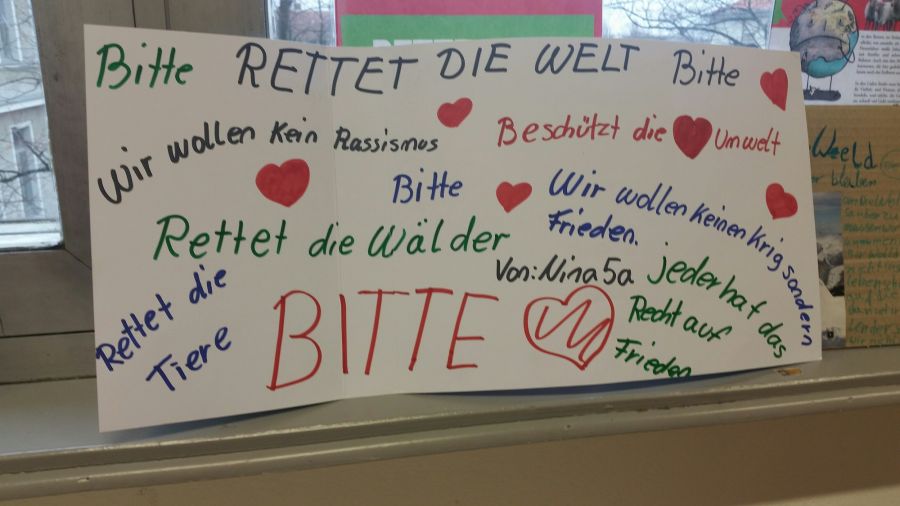 Bitte RETTET DIE WELT Bitte
Wir wollen Kein Rassismus
Beschützt die Umwelt
Bitte
Wir wollen keinen Krig sondern
Frieden.
Rettet die Wälder
Von: Nina 5a
Jeder hat das
Recht auf
Frieden
Rettet die
Tiere
BITTE
Weeld